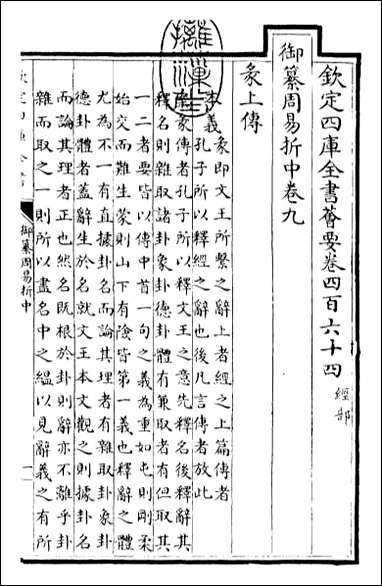 欽定四庫全書薈要卷四百六十四 經部
御纂周易折中卷九
彖上傳
本義彖即文王所繫之辭上者經之上篇傳者
孔子所以釋經之辭也後凡言傳者放此
彖傳者孔子所以釋文王之意先釋名後釋辭其
釋名則雜取諸卦象卦德卦體有兼取者有但取其
一二者要皆以傳中首一句之義為重如屯則剛柔
始交而難生蒙則山下有險皆第一義也釋辭之體
尤為不一有直據卦名而論其理者有雜取卦象卦
德卦體者蓋辭生於名就文王本文觀之則據卦名
而論其理者正也然名既根於卦則辭亦不離乎卦
雜而取之一則所以盡名中之緼以見辭義之有所
欽定四庫全書
御纂周易折中
一